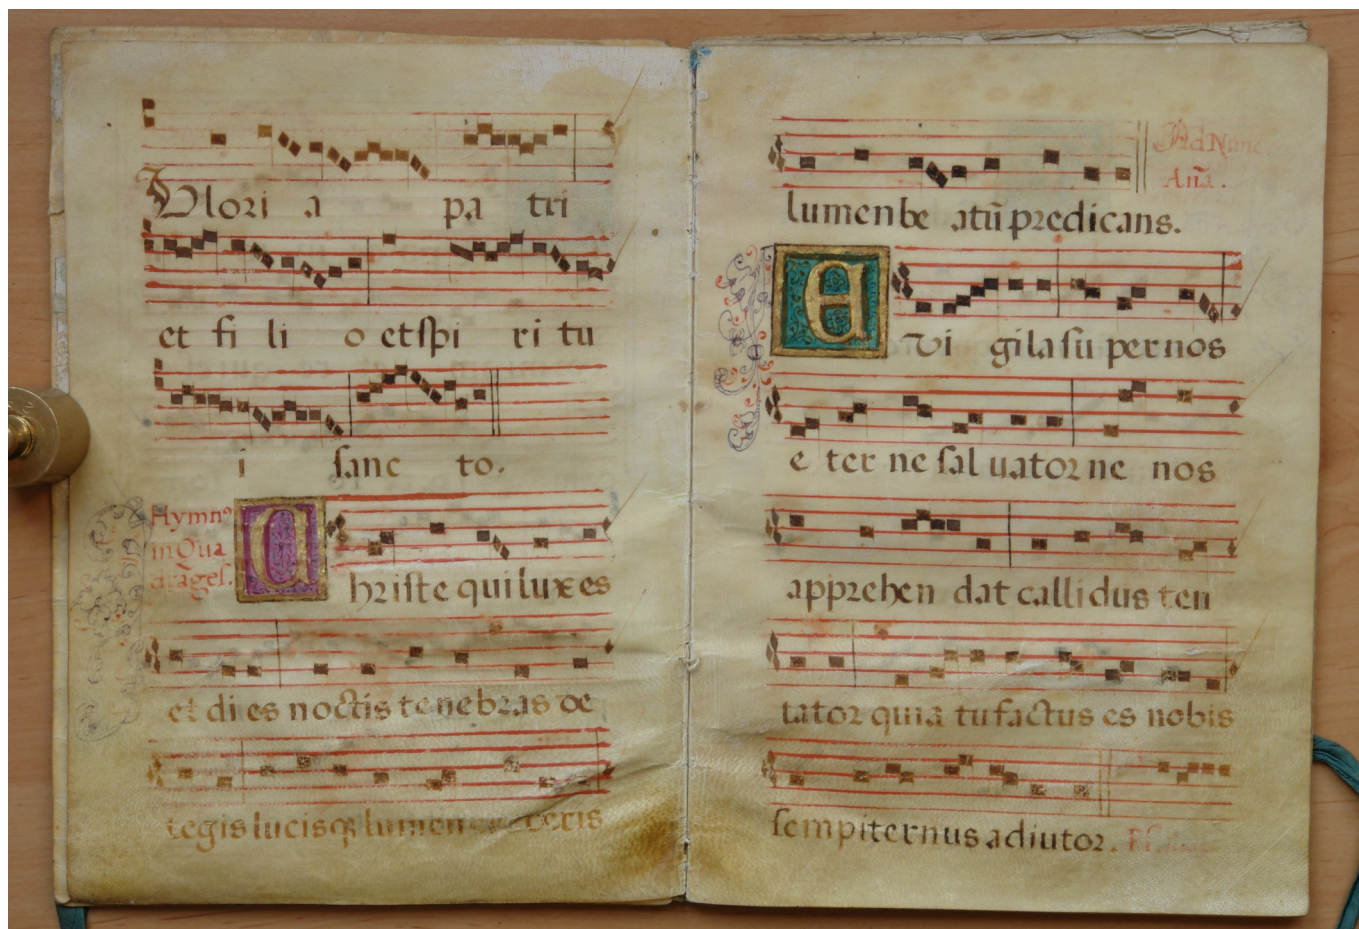 Glori a pa tri
et fi li o et spi ri tu
i sanc to.
Hymnꝰ
in Qua
drages.
Christe qui lux es
et di es noctis tenebras de
tegis lucisqꝫ lumen
Ad Nunc
Aña.
lumen be atũ predicans.
EVi gila su per nos
e ter ne sal uator ne nos
apprehen dat calli dus ten
tator quia tu factus es nobis
sempiternus adiutor.